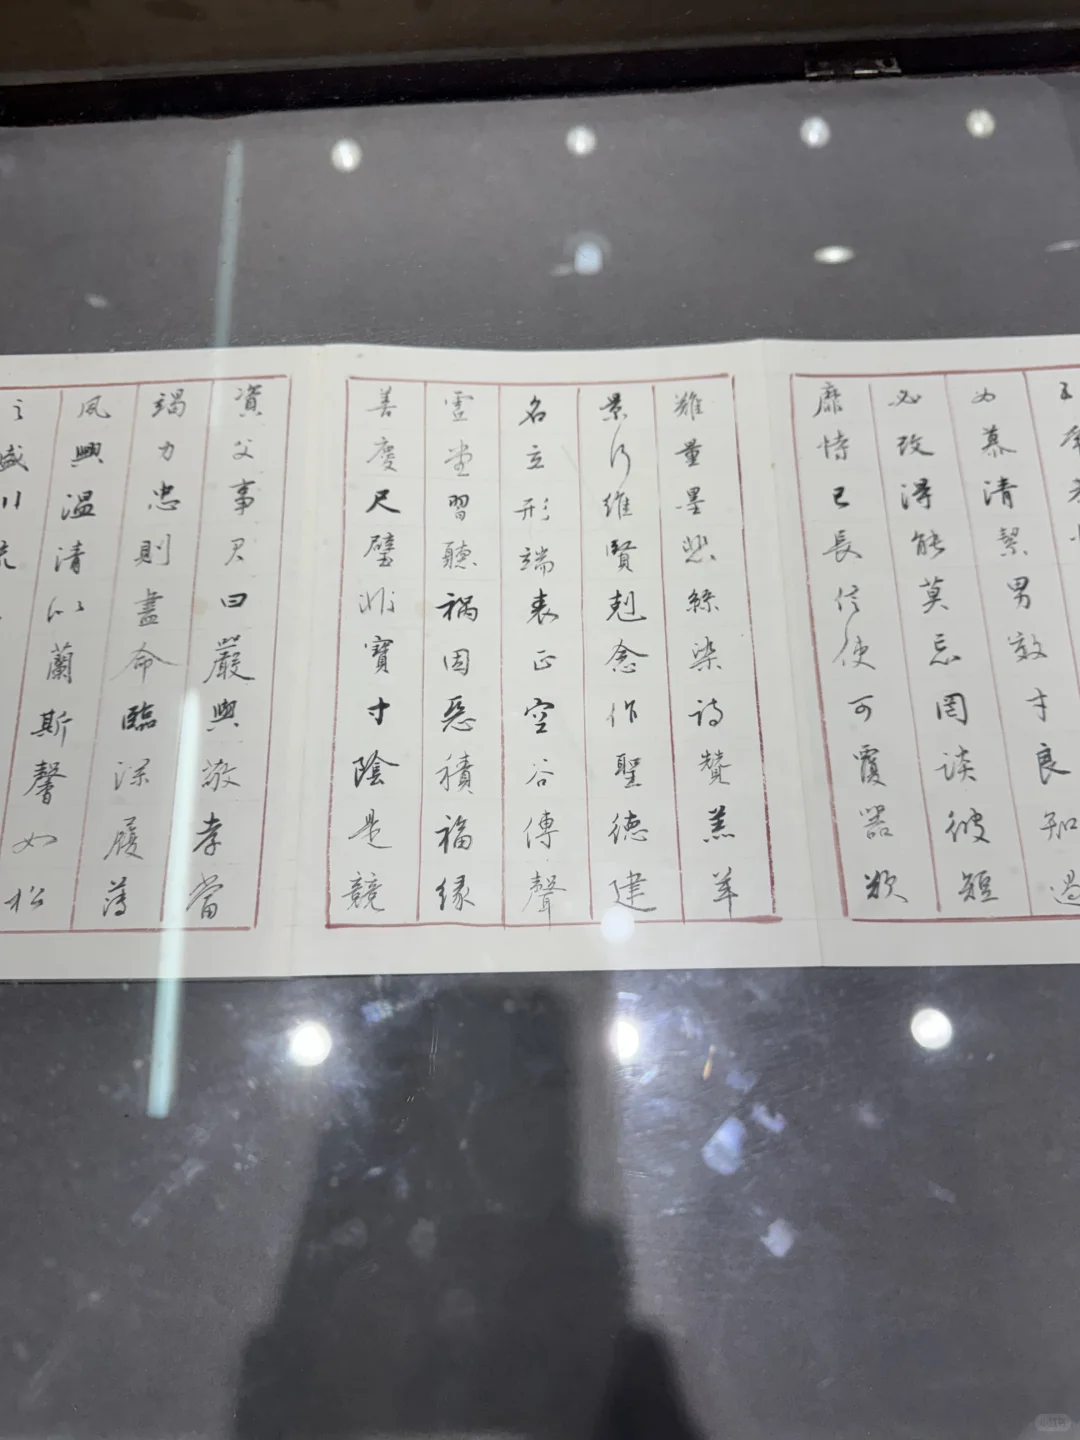 女慕清絜男效才良知過
必改得能莫忘罔談彼短
靡恃己長信使可覆器欲
難量墨悲絲染詩贊羔羊
景行維賢剋念作聖德建
名立形端表正空谷傳聲
虛堂習聽禍因惡積福緣
善慶尺璧非寶寸陰是競
資父事君曰嚴與敬孝當
竭力忠則盡命臨深履薄
夙興温清似蘭斯馨如松
之盛川流